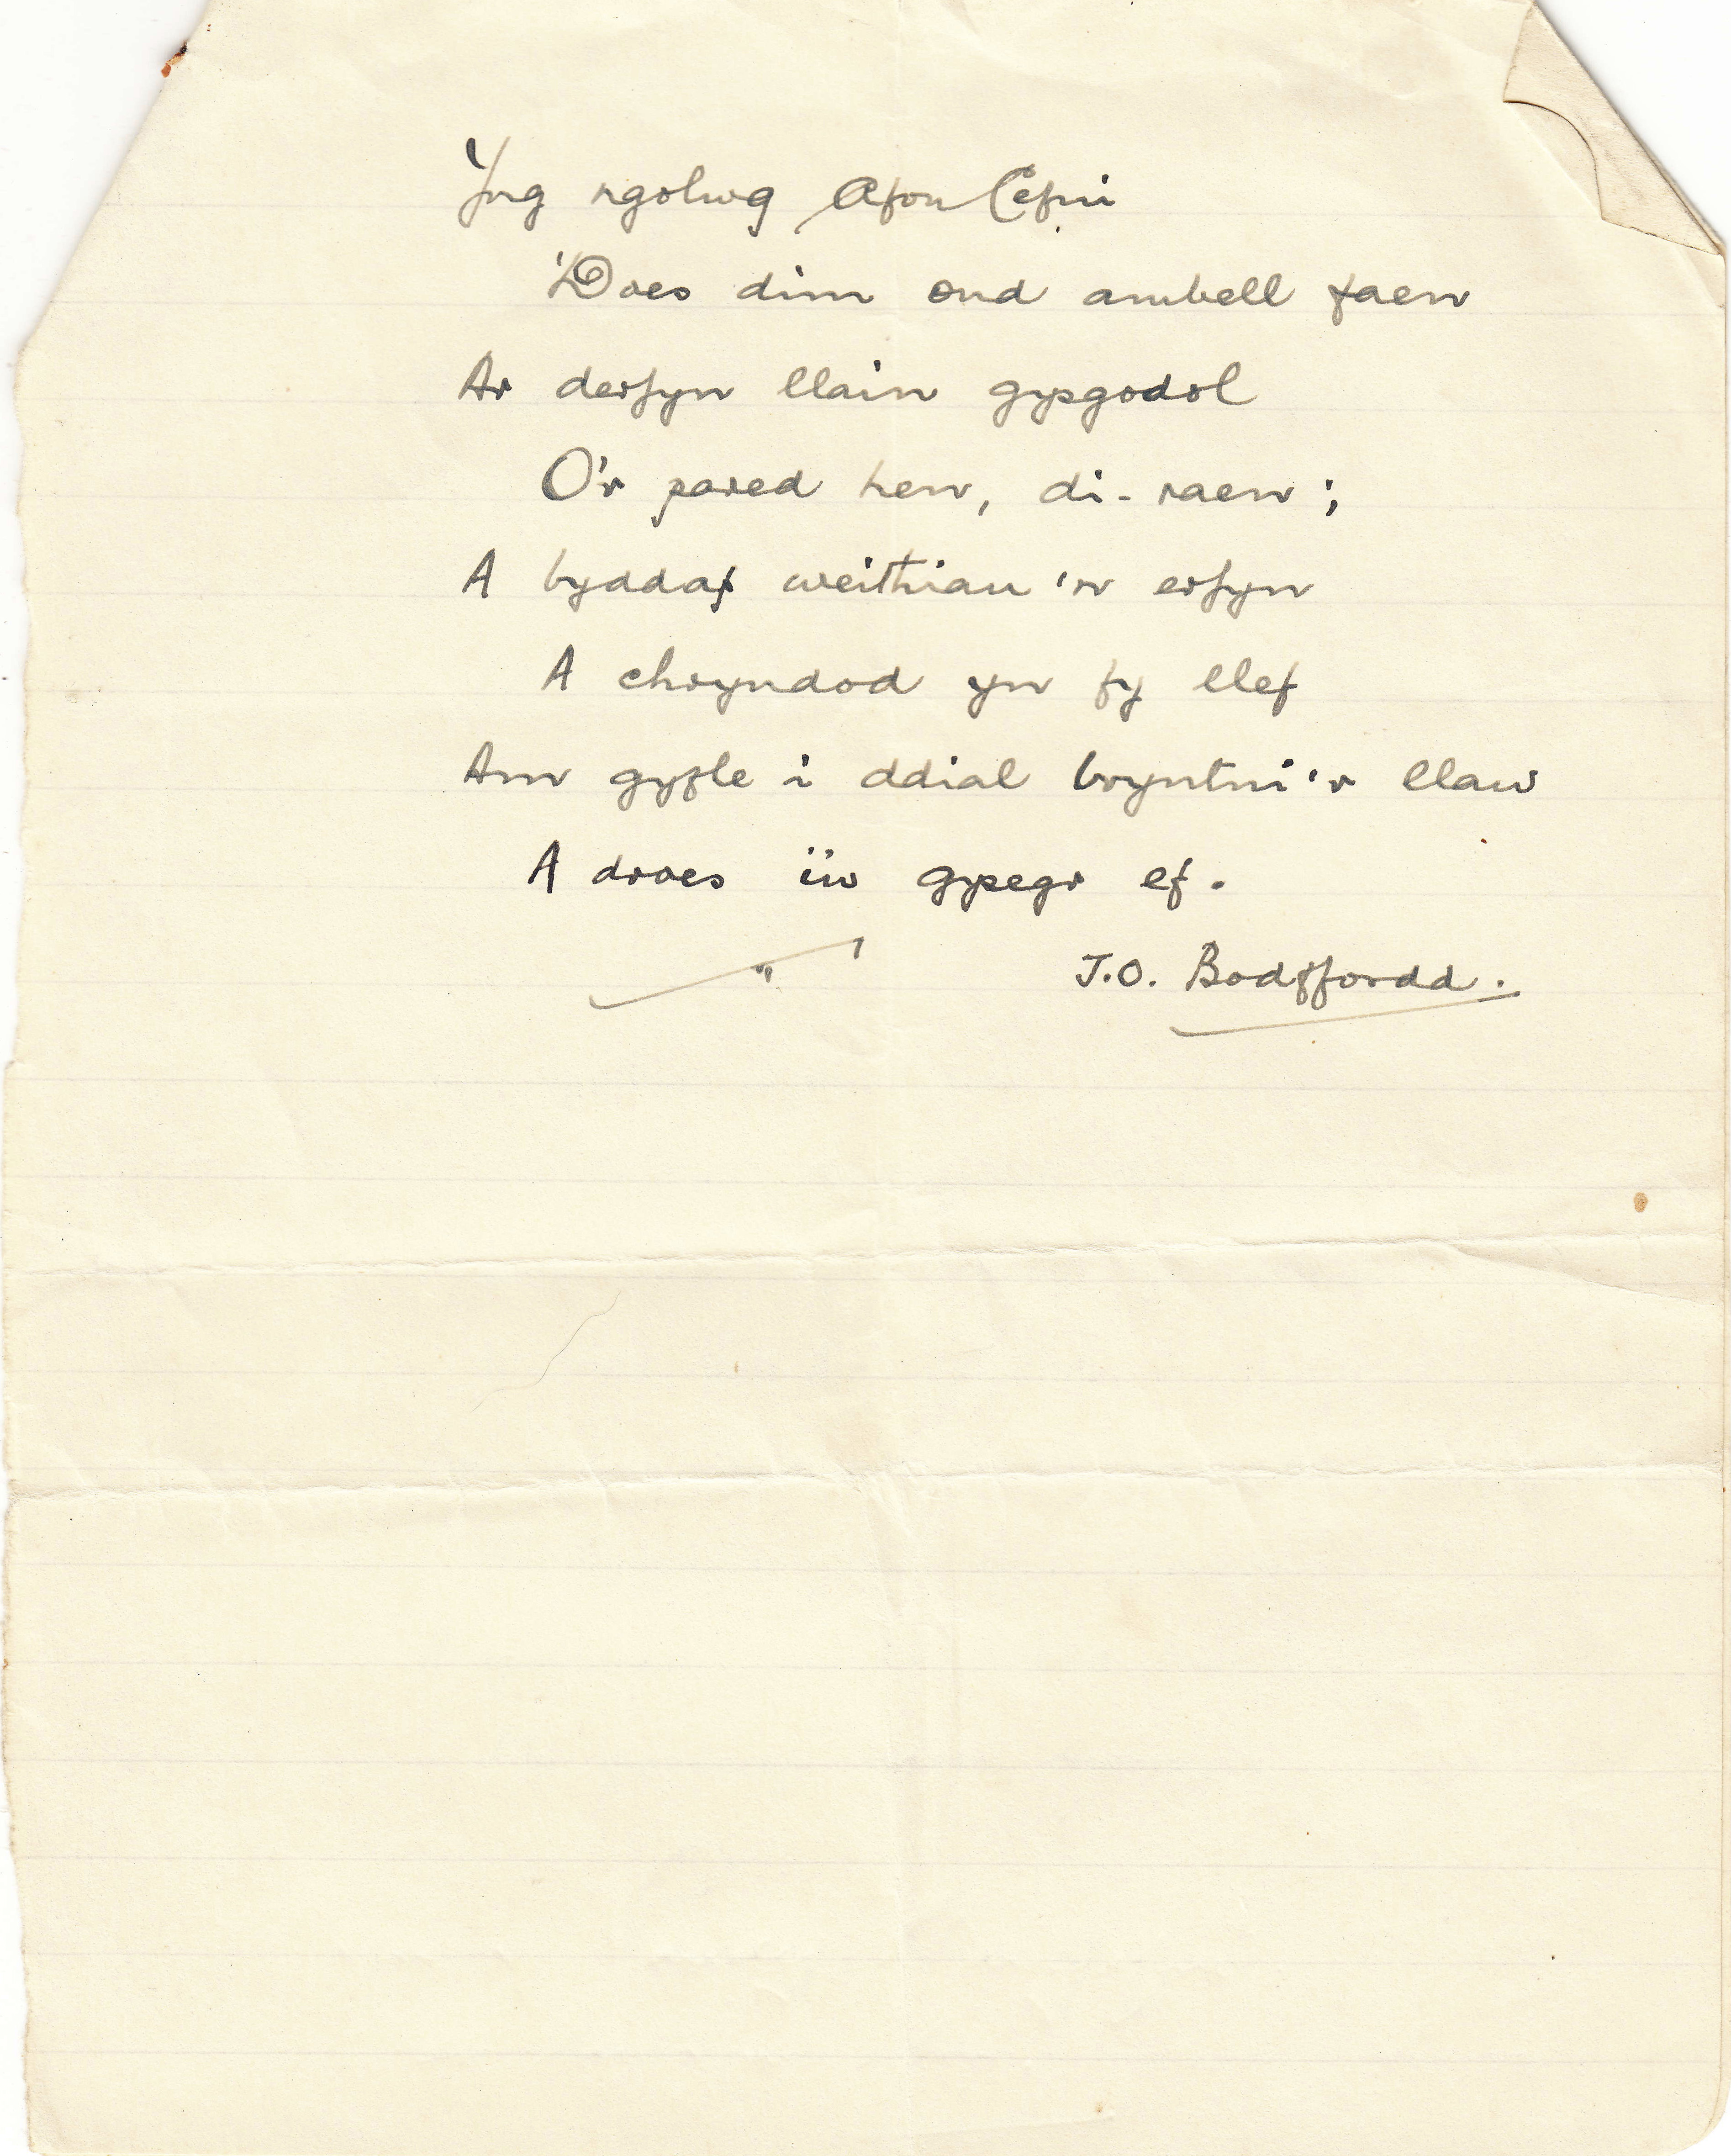 Yng ngolwg Afon Cefni
'Does dim ond ambell faen
Ar derfyn llain gysgodol
O'r pared hen, di-raen;
A byddaf weithiau'n erfyn
A chryndod yn fy llef
Am gyfle i ddial bryntni'r llaw
A droes i'w gysegr ef.
J.O. Bodffordd.